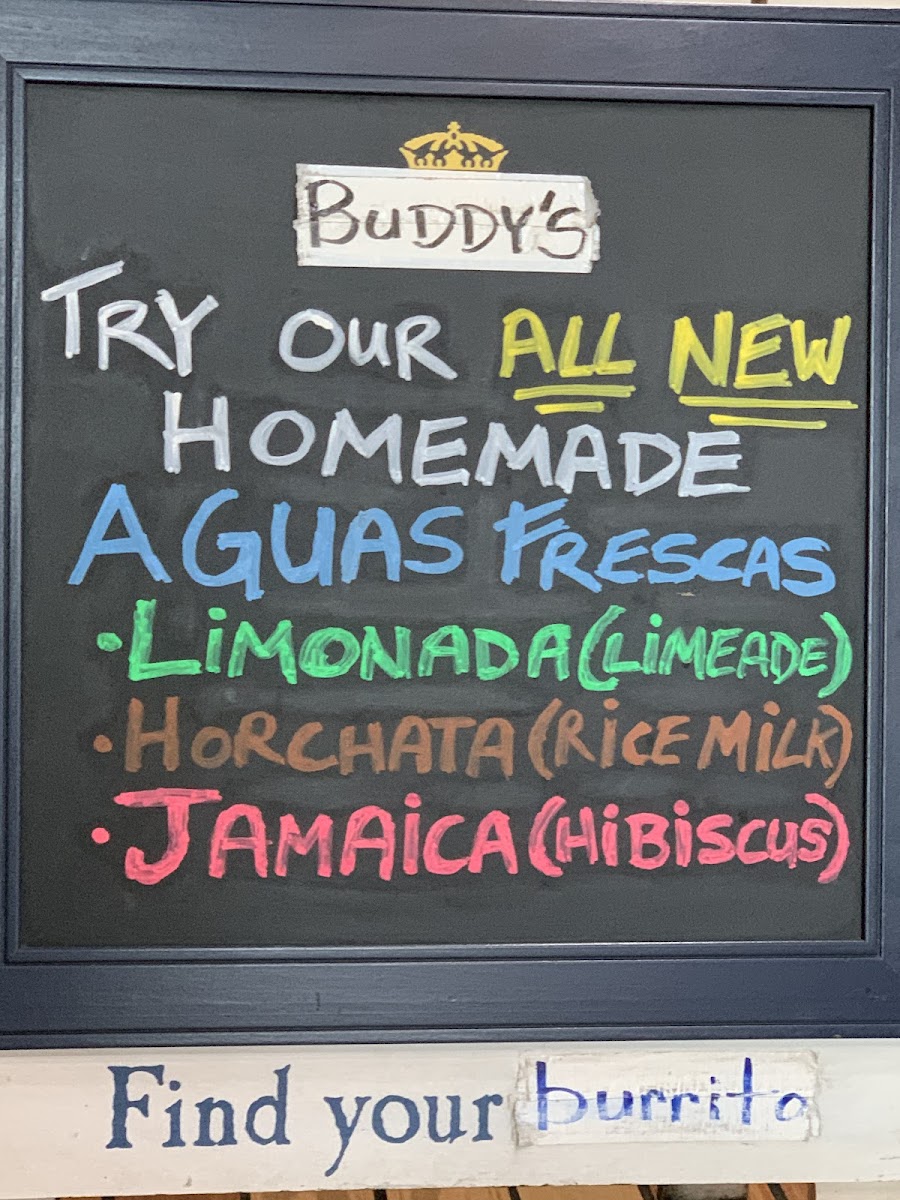 BUDDY'S
TRY OUR ALL NEW
HOMEMADE
AGUAS FRESCAS
·LiMONADA (LiMEADE)
·HORCHATA (RiCE MiLK)
·JAMAiCA (HiBiSCUS)
Find your burrito